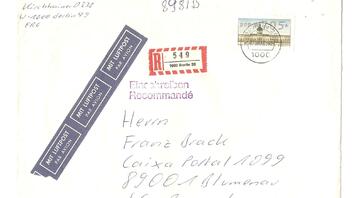 Kirchhainer D 238
W-1000 Berlin 49
FRG
898/D
R
549
1000 Berlin 20
1000
Einschreiben
Recommandé
MIT LUFTPOST
PAR AVION
MIT LUFTPOST
PAR AVION
MIT LUFTPOST
PAR AVION
MIT LUFTPOST
PAR AVION
Herrn
Franz Brack
Caixa Postal 1099
89001 Blumenau